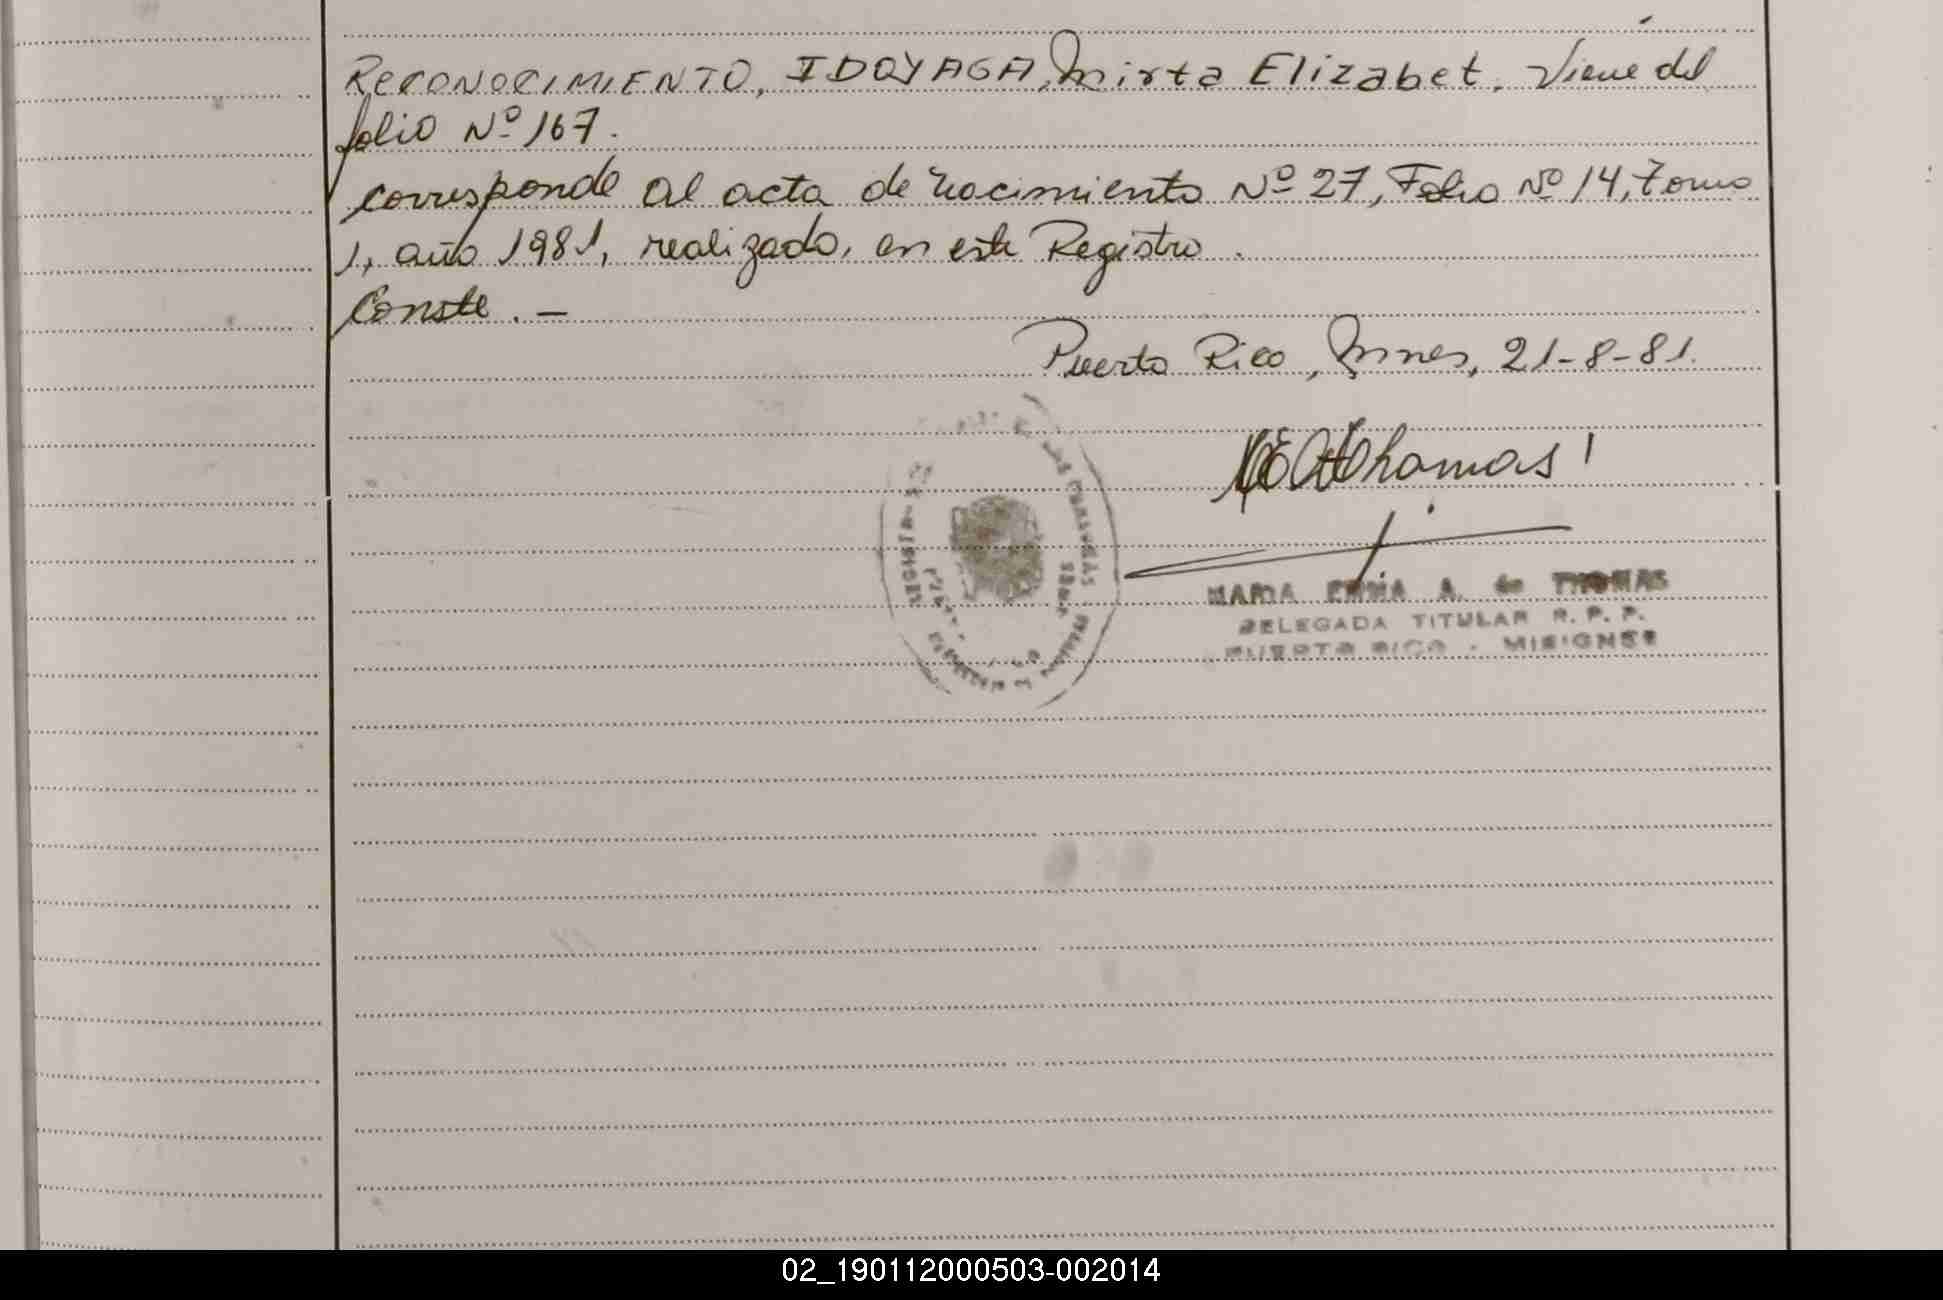 RECONOCIMIENTO, IDOYAGA, Mirta Elizabet. Viene del
folio Nº 167.
corresponde al acta de nacimiento Nº 27, Folio Nº 14, Tomo
1, año 1981, realizado, en este Registro.
Conste. —
Puerto Rico, Mnes, 21-8-81.
Thomas
MARIA EMMA A. de THOMAS
DELEGADA TITULAR R. P. P.
PUERTO RICO - MISIONES
REGISTRO
02_190112000503-002014